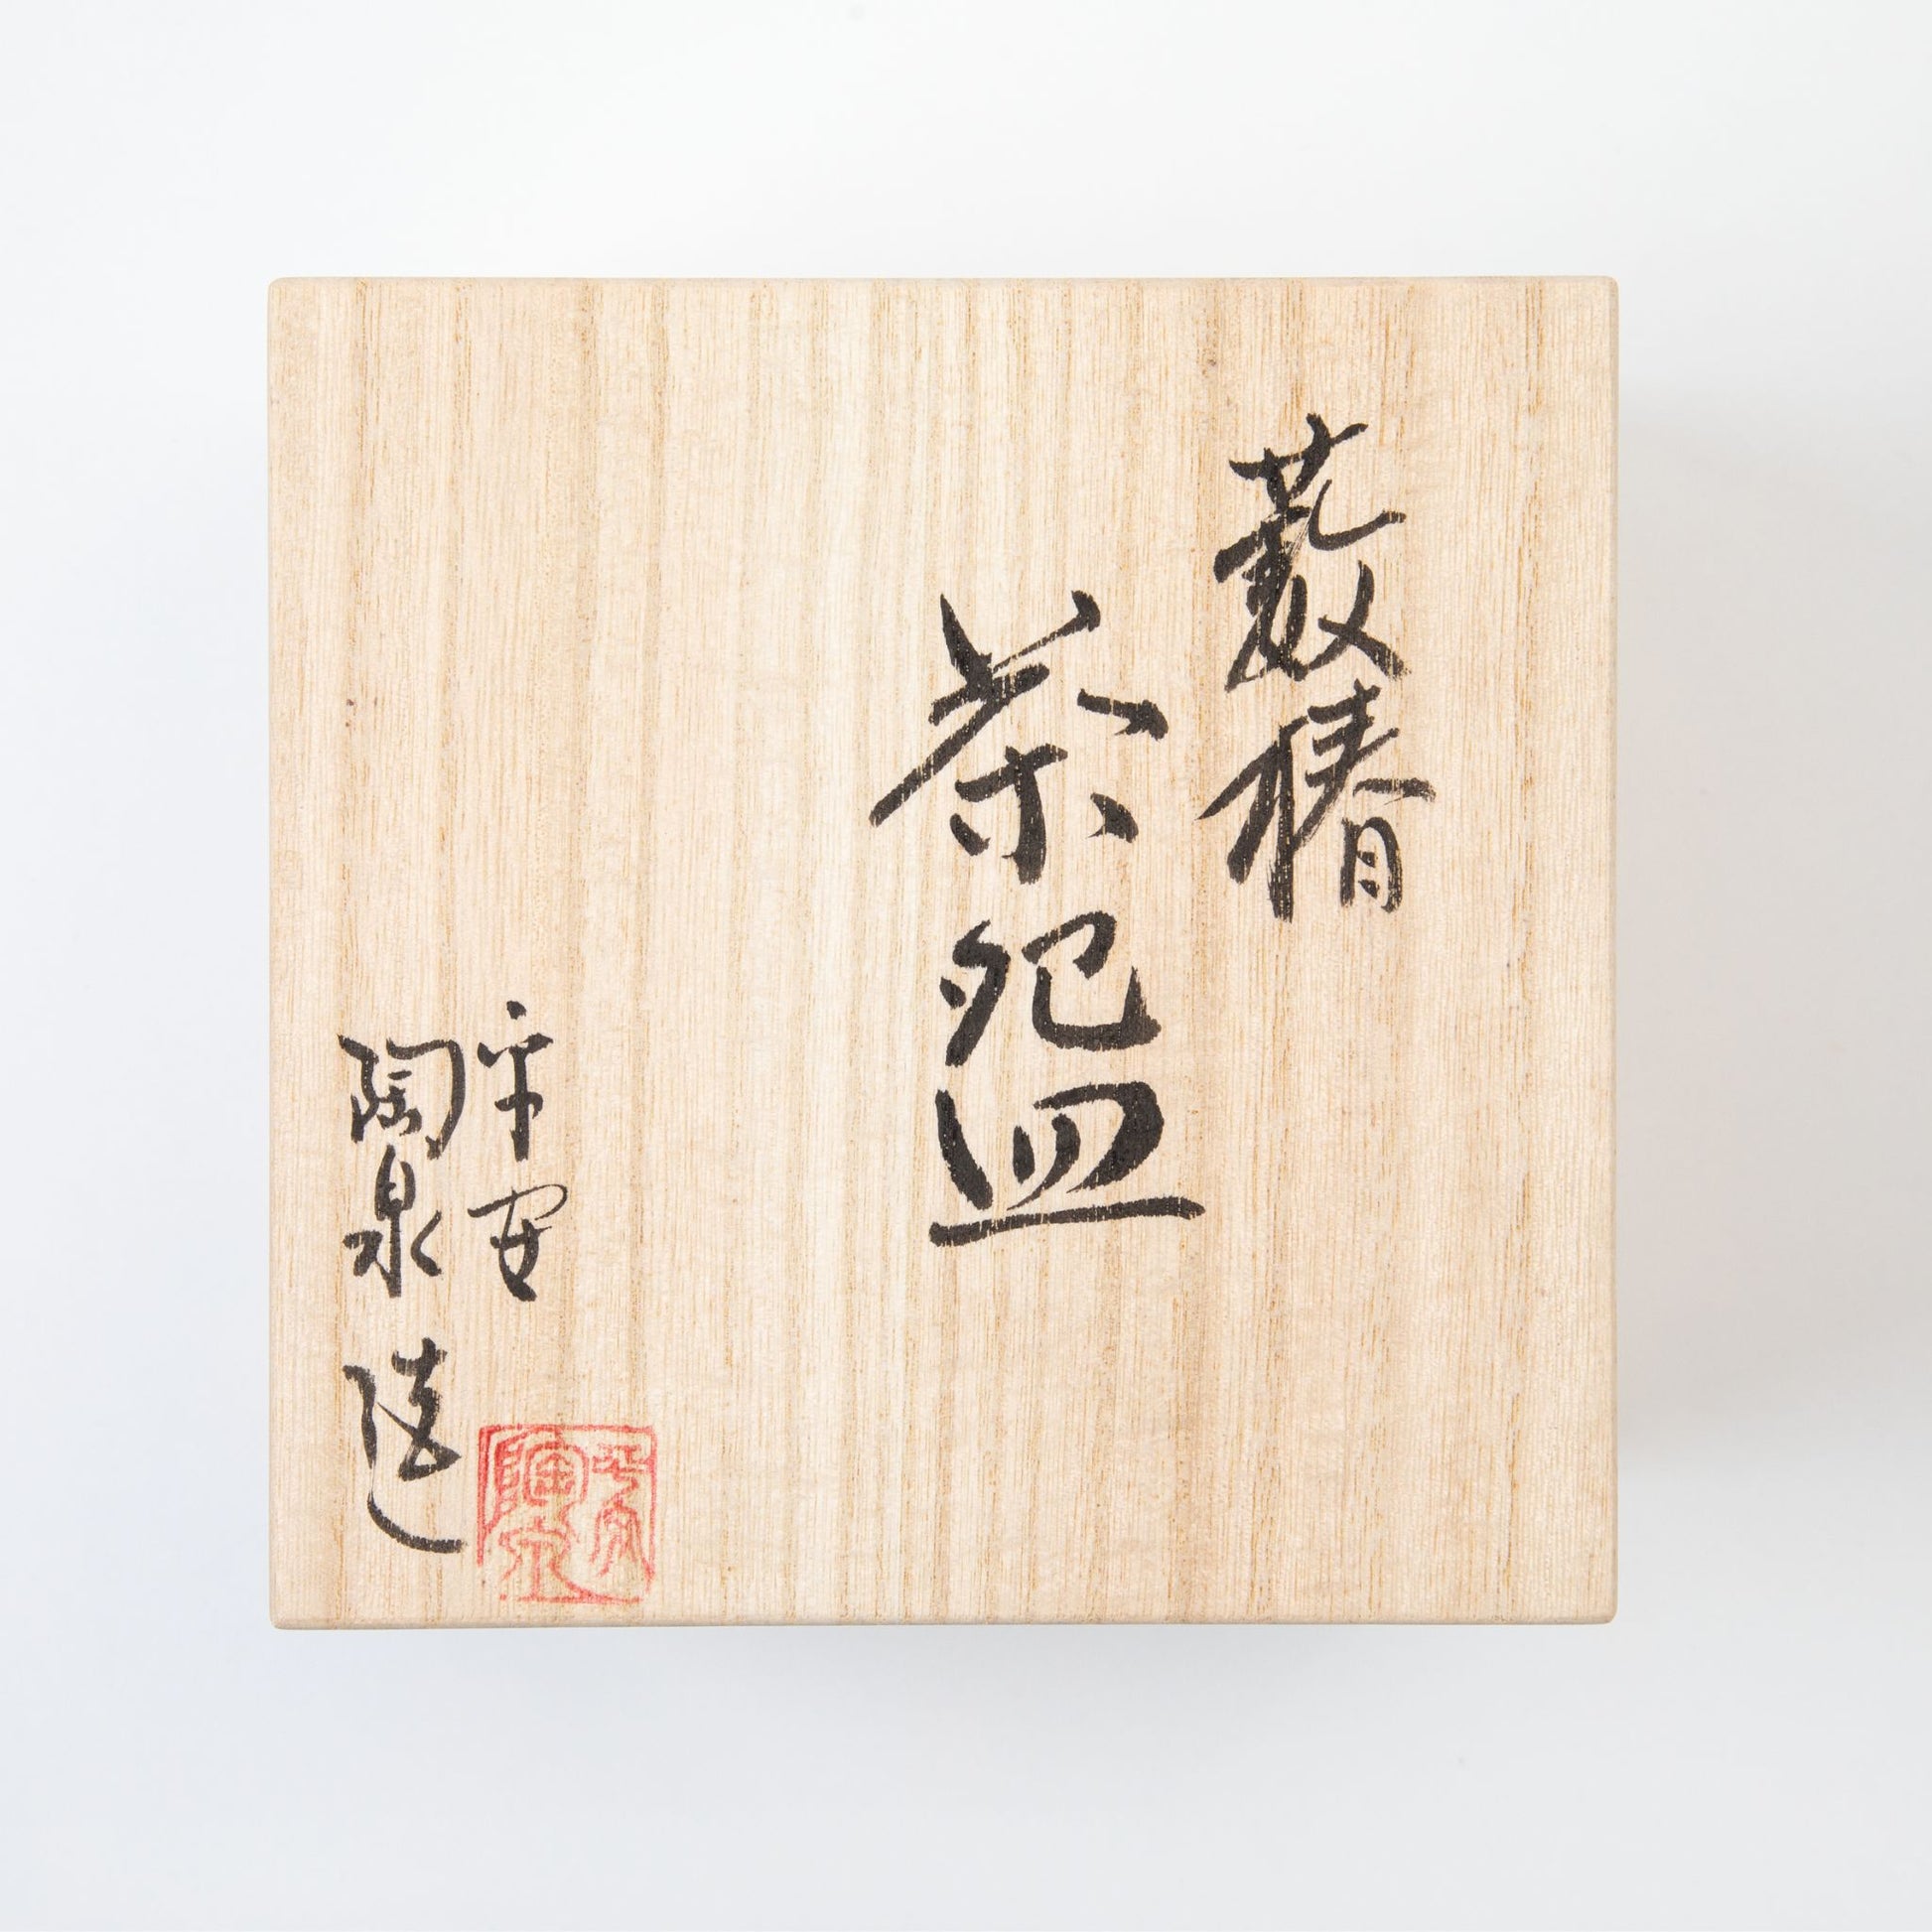 藪椿
茶盌
平安
陶泉造
平安
陶泉